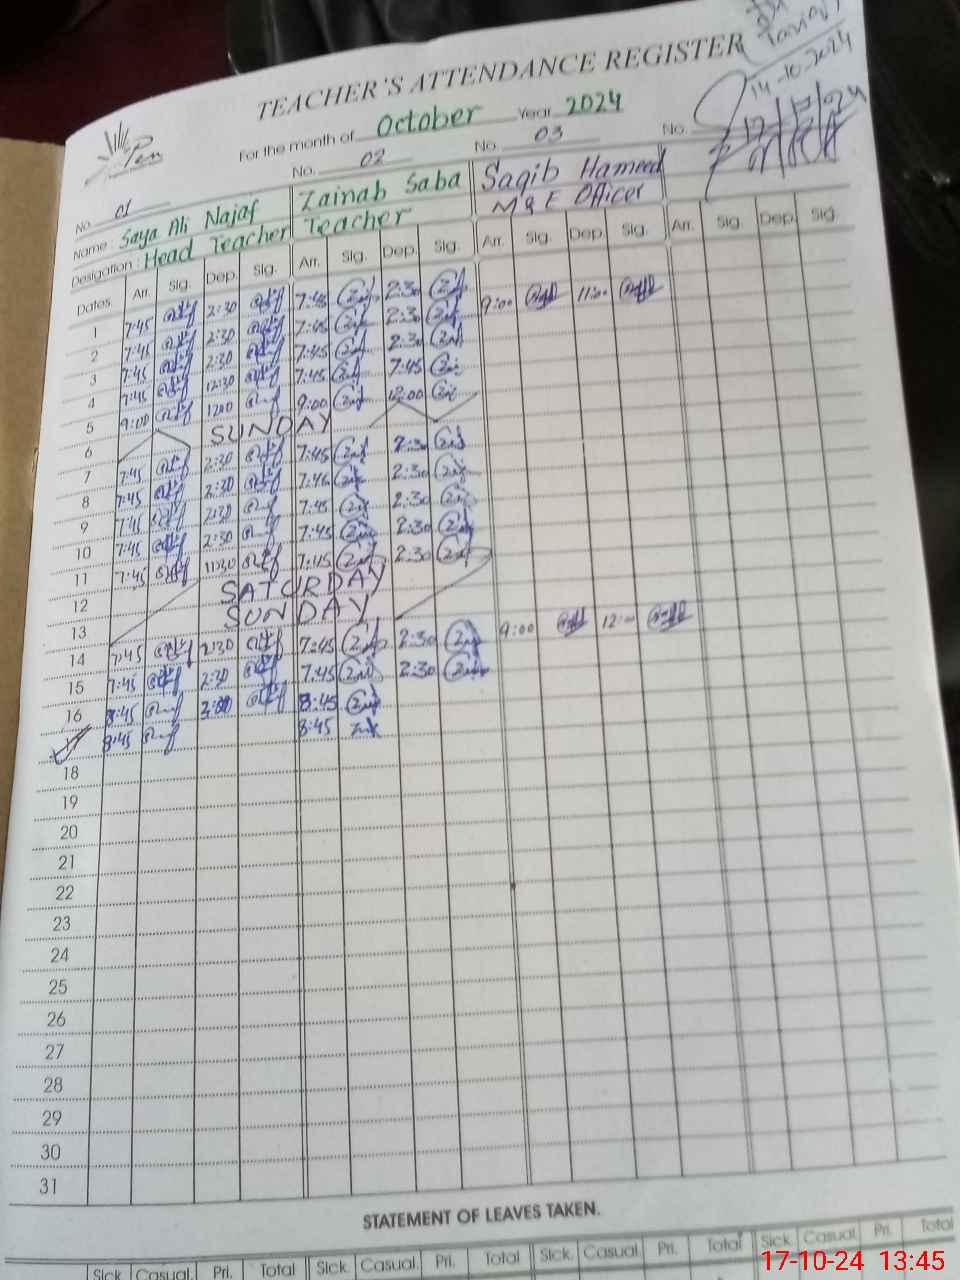 14-10-2024
TEACHER'S ATTENDANCE REGISTER
Pen
For the month of October Year 2024
No. 01 No. 02 No. 03 No.
Name: Saya Ali Najaf Zainab Saba Saqib Hameed
Desigation: Head Teacher Teacher M & E Officer
Dates. Arr. Sig. Dep. Sig. Arr. Sig. Dep. Sig. Arr. Sig. Dep. Sig. Arr. Sig. Dep. Sig.
1 7:45 2:30 7:45 2:30 9:00 11:00
2 7:45 2:30 7:45 2:30
3 7:45 2:30 7:45 2:30
4 7:45 12:30 7:45 7:45
5 9:00 1200 9:00 12:00
6 SUNDAY
7 7:45 2:30 7:45 2:30
8 7:45 2:30 7:45 2:30
9 7:45 2:30 7:45 2:30
10 7:45 2:30 7:45 2:30
11 7:45 11:30 7:45 2:30
12 SATURDAY
13 SUNDAY
14 7:45 2:30 7:45 2:30 9:00 12:00
15 7:45 2:30 7:45 2:30
16 8:45 8:45
8:45 8:45
18
19
20
21
22
23
24
25
26
27
28
29
30
31
STATEMENT OF LEAVES TAKEN.
Sick Casual Pri. Total Sick Casual Pri. Total Sick Casual Pri. Total Sick Casual Pri. Total
17-10-24 13:45